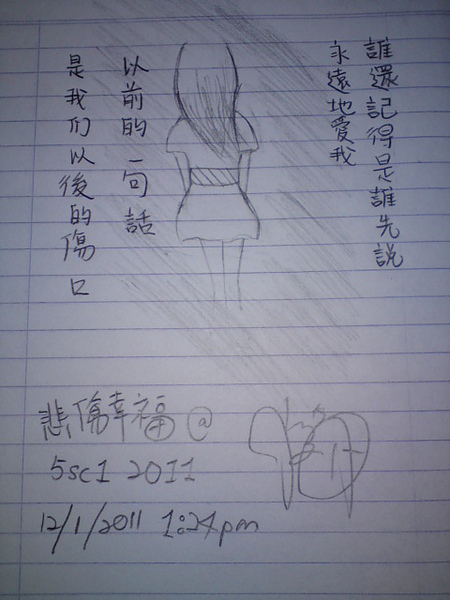 誰還記得是誰先説
永遠地愛我
以前的一句話
是我们以後的傷口
悲傷幸福@
5sc1 2011
12/1/2011 1:24pm